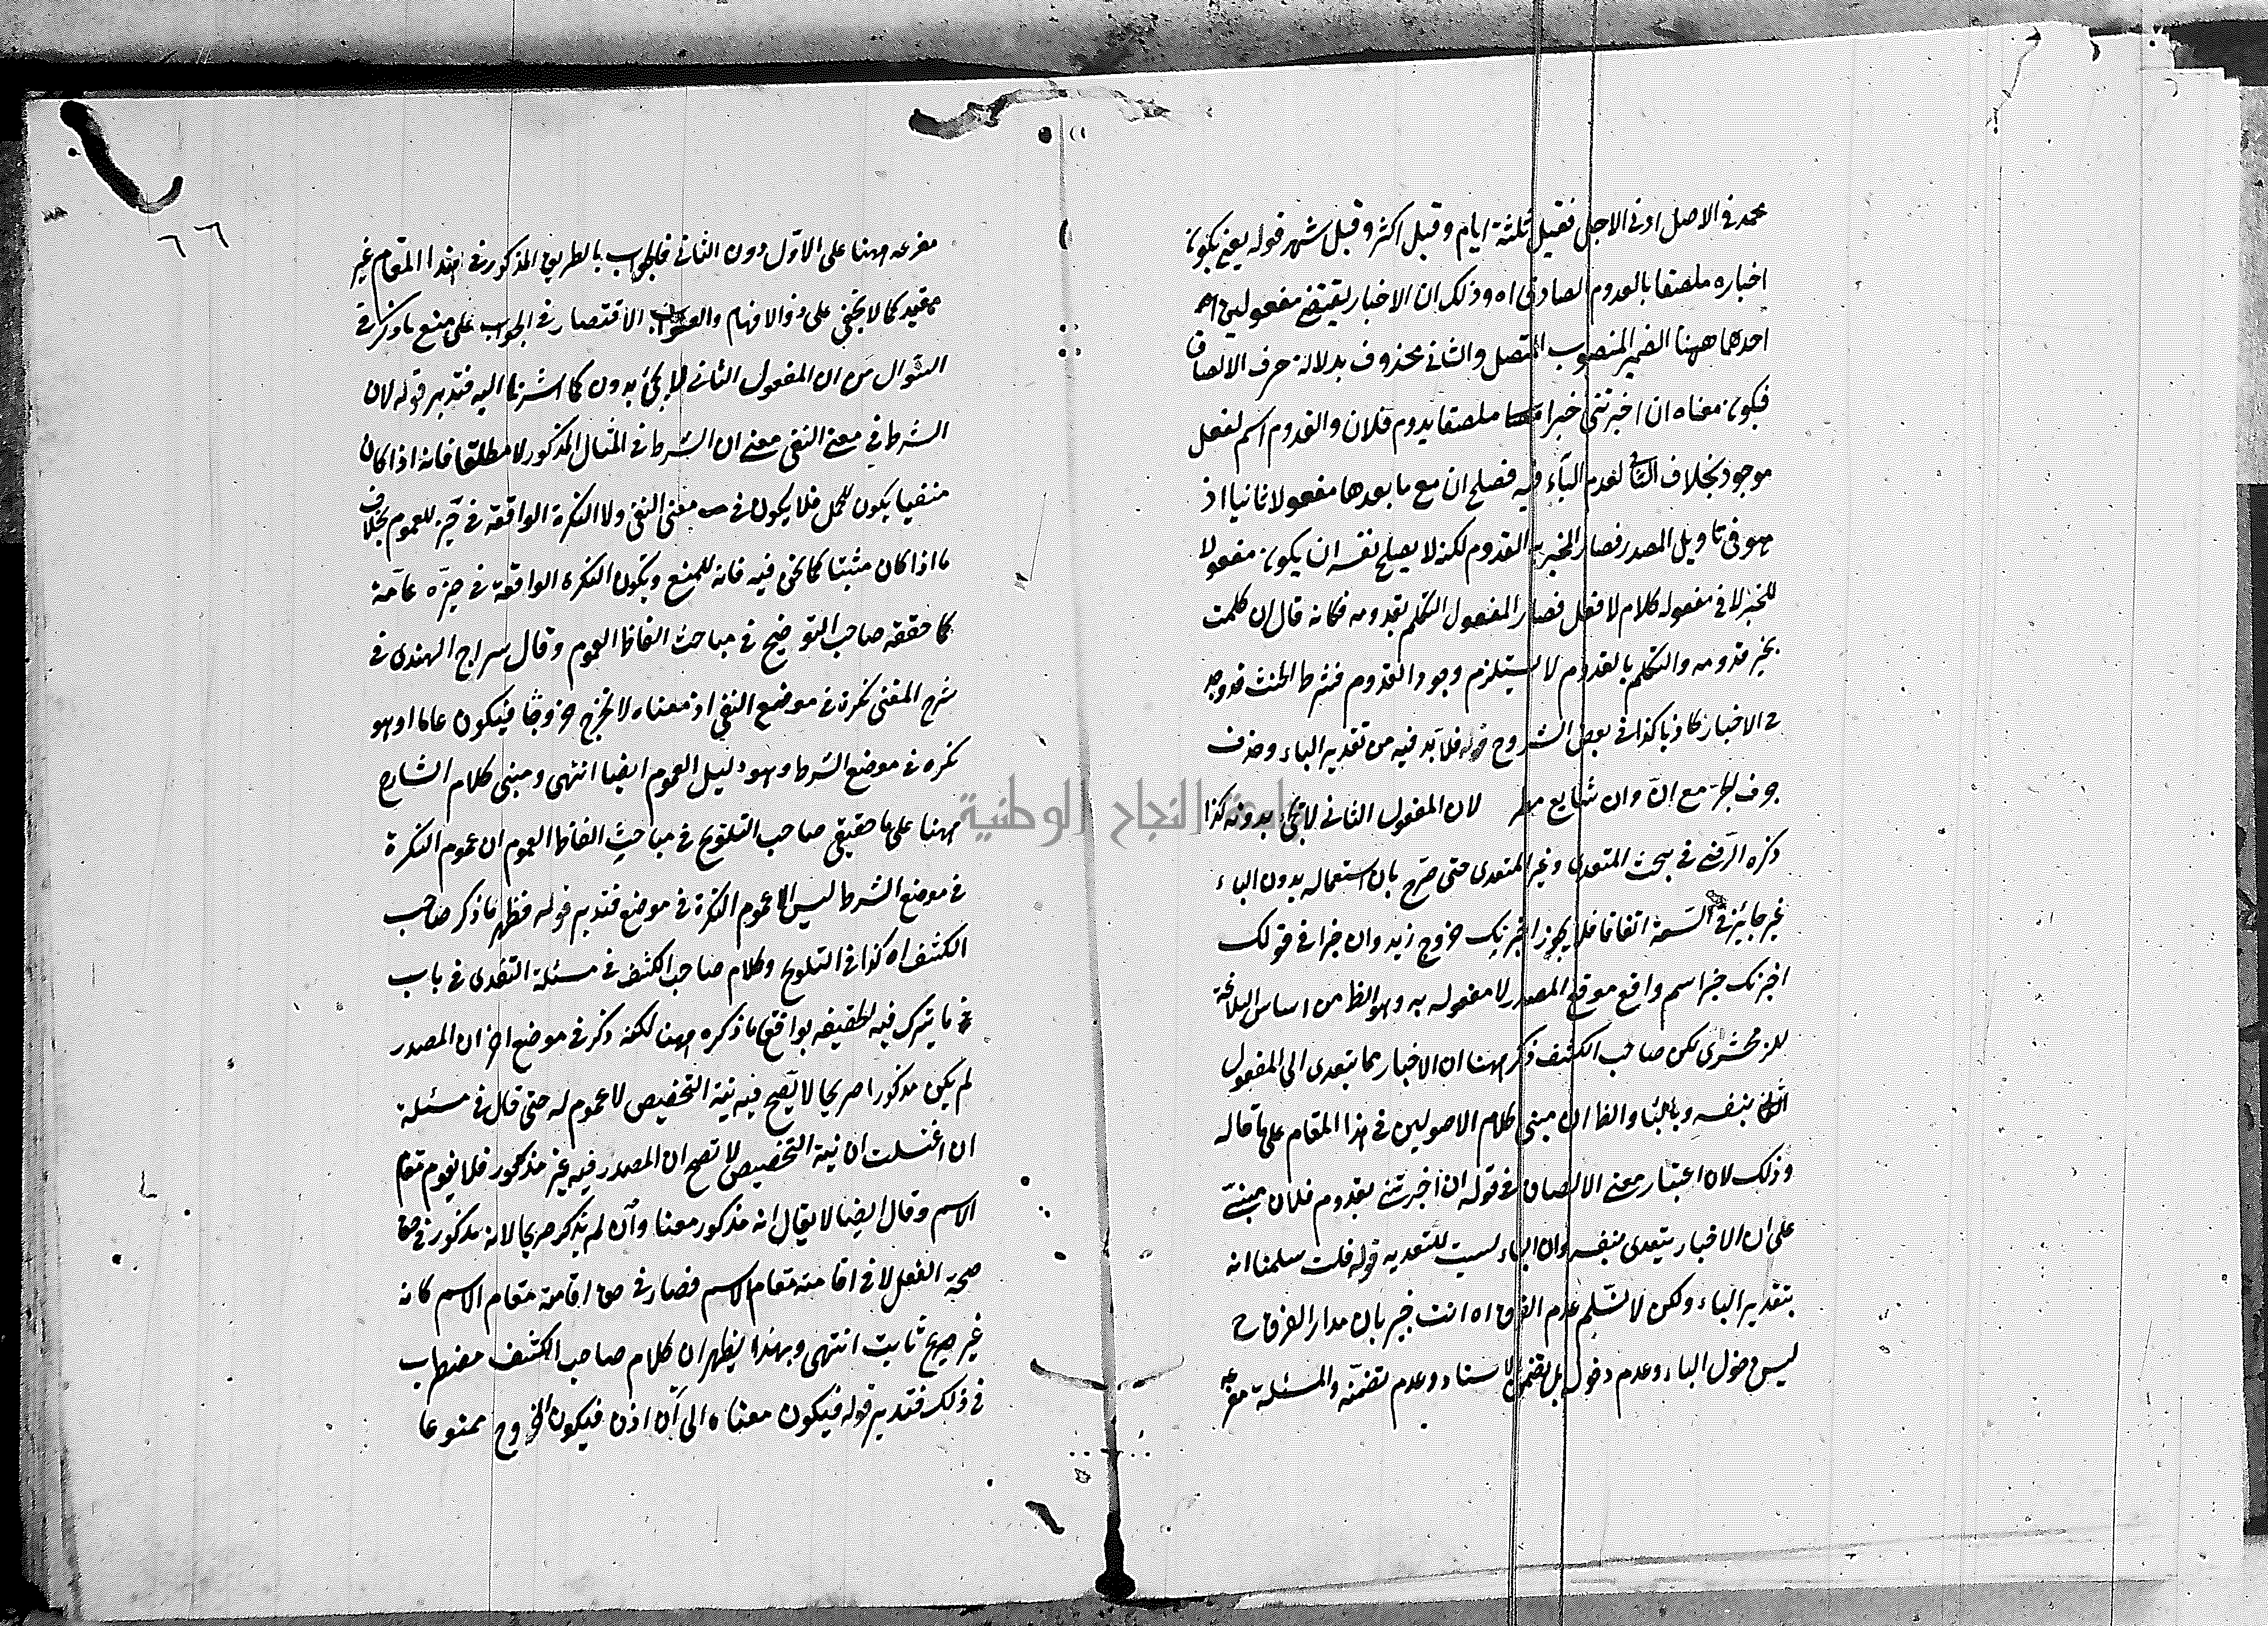 محمد في الاصل ادنى الاجل فقيل ثلثة ايام وقيل اكثر وقيل شهر قوله يعني يكون
اخباره ملصقا بالقدوم الصادق اه وذلك ان الاخبار يقتضي مفعولين
احدهما ههنا الضمير المنصوب المتصل والثاني محذوف بدلالة حرف الالصاق
فيكون معناه ان اخبرتني خبرا ملصقا بقدوم فلان والقدوم اسم لفعل
موجود بخلاف الثاني لعدم الباء فيه فصلح ان مع ما بعدها مفعولا ثانيا اذ
هو في تاويل المصدر فصار المخبر به القدوم لكنه لا يصلح نفسه ان يكون مفعولا
للخبر لا في مفعوله كلام لا فعل فصار المفعول التكلم بقدومه فكانه قال ان كلمت
بخبر قدومه والتكلم بالقدوم لا يستلزم وجود القدوم فشرط الحنث قد وجد
في الاخبار كاذبا كذا في بعض الشروح قوله فلا بد فيه من تقدير الباء وحذف
حرف الجر مع ان وان شايع لان المفعول الثاني لا يجئ بدونه كذا
ذكره الرضي في بحث المتعدي وغير المتعدي حتى صرح بان استعماله بدون الباء
غير جائز في السعة اتفاقا فلا يجوز اخبرتك خروج زيد وان خبرا في قولك
اخبرتك خبرا اسم واقع موقع المصدر لا مفعوله به وهو الظ من اساس البلاغة
للزمخشري لكن صاحب الكشف ذكر ههنا ان الاخبار مما يتعدى الى المفعول
الثاني بنفسه وبالباء والظ ان مبنى كلام الاصوليين في هذا المقام على ما قاله
وذلك لان اعتبار معنى الالصاق في قوله ان اخبرتني بقدوم فلان مبني
على ان الاخبار يتعدى بنفسه وان الباء ليست للتعدية قوله قلت سلمنا انه
بتقدير الباء ولكن لا نسلم عدم الفرق اه انت خبير بان مدار الفرق ح
ليس دخول الباء وعدم دخوله بل تضمن الاسناد وعدم تضمنه والمسئلة مفرعة
مفرعه ههنا على الاول دون الثاني فالجواب بالطريق المذكور في هذا المقام غير
مفيد كما لا يخفى على ذو الافهام والصواب الاقتصار في الجواب على منع ما ذكر في
السؤال من ان المفعول الثاني لا يجئ بدون كما اشرنا اليه فتدبر قوله لان
الشرط في معنى النفي معنى ان الشرط في المثال المذكور لا مطلقا فانه اذا كان
منفيا يكون للحمل فلا يكون في معنى النفي ولا النكرة الواقعة في حيزه للعموم بخلاف
ما اذا كان مثبتا كما نحن فيه فانه للمنع ويكون النكرة الواقعة في حيزه عامة
كما حققه صاحب التوضيح في مباحث الفاظ العموم وقال سراج الهندي في
شرح المغني نكرة في موضع النفي اذ معناه لا تخرج خروجا فيكون عاما او هو
نكره في موضع الشرط وهو دليل العموم ايضا انتهى ومبنى كلام الشارح
ههنا على ما حقيق صاحب التلويح في مباحث الفاظ العموم ان عموم النكرة
في موضع الشرط ليس الا عموم النكرة في موضع فتدبر قوله فظهر ما ذكر صاحب
الكشف اه كذا في التلويح وكلام صاحب الكشف في مسئلة التغدي في باب
ما يترك فيه الحقيقه يوافق ما ذكره ههنا لكنه ذكر في موضع اخر ان المصدر
لم يكن مذكورا صريحا لا يصح فيه نية التخصيص لا عموم له حتى قال في مسئلة
ان اغتسلت ان نية التخصيص لا تصح ان المصدر فيه غير مذكور فلا يقوم مقام
الاسم وقال ايضا لا يقال انه مذكور معنا وان لم يذكر صريحا لانه مذكور في حق
صحة الفعل لا في اقامته مقام الاسم فصار في حق اقامته مقام الاسم كانه
غير صريح ثابت انتهى وبهذا يظهر ان كلام صاحب الكشف مضطرب
في ذلك فتدبر قوله فيكون معناه الى ان اذن فيكون الخروج ممنوعا
٦٦
جامعة النجاح الوطنية